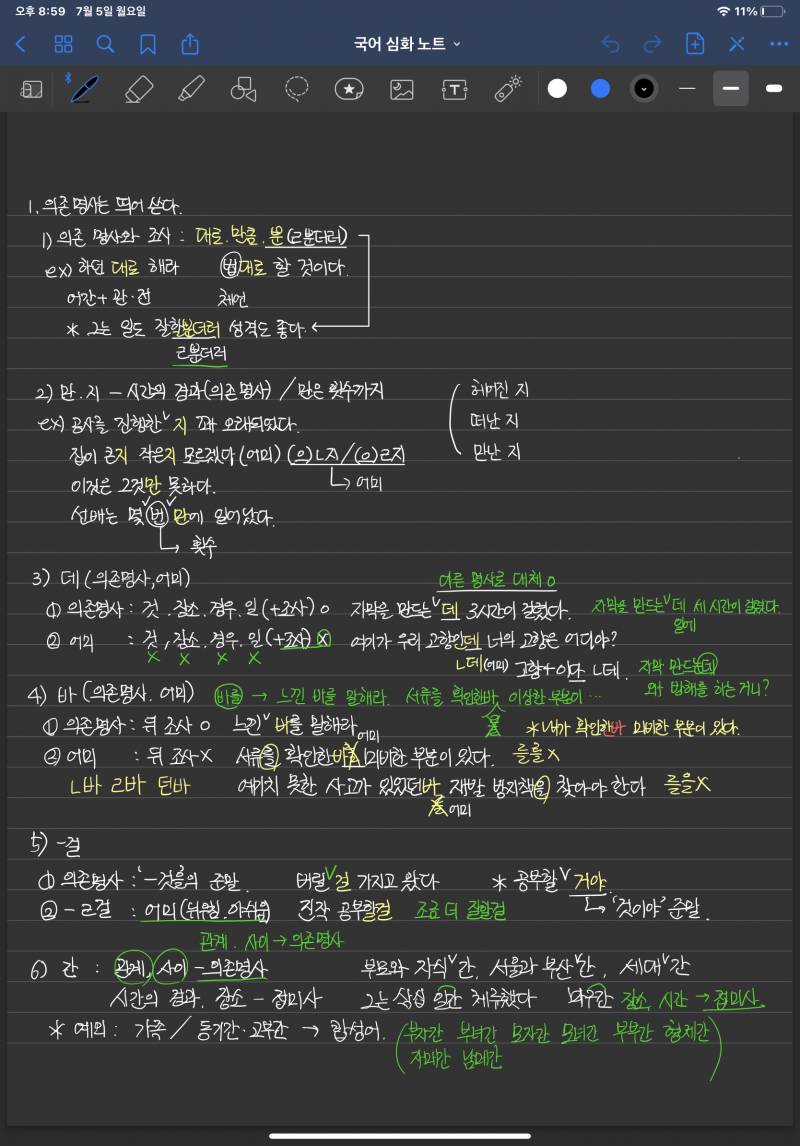 오후 8:59 7월 5일 월요일
11%
국어 심화 노트
1. 의존명사는 띄어 쓴다.
1) 의존 명사와 조사 : 대로. 만큼. 뿐(ㄹ뿐더러)
ex) 하던 대로 해라 법대로 할 것이다.
어간+관·전 체언
* 그는 일도 잘할뿐더러 성격도 좋다.
ㄹ뿐더러
2) 만. 지 - 시간의 경과(의존명사) / 만은 횟수까지
헤어진 지
ex) 공사를 진행한 ∨ 지 꽤 오래되었다.
떠난 지
집이 큰지 작은지 모르겠다 (어미) (으)ㄴ지/(으)ㄹ지
만난 지
이것은 그것만 못하다.
→ 어미
선배는 몇 ∨ 번 ∨ 만에 일어났다.
→ 횟수
3) 데 (의존명사, 어미)
다른 명사로 대체 o
① 의존명사 : 것. 장소. 경우. 일 (+조사) o 자막을 만드는 ∨ 데 3시간이 걸렸다. 자막을 만드는 ∨ 데 세 시간이 걸렸다.
일에
② 어미 : 것, 장소. 경우. 일 (+조사) X 여기가 우리 고향인데 너의 고향은 어디야?
X X X X
ㄴ데(어미) 고향+이다 ㄴ데. 자막 만드는데
왜 방해를 하는 거니?
4) 바 (의존명사. 어미) 바를 → 느낀 바를 말해라. 서류를 확인한바 이상한 부분이 ...
① 의존명사 : 뒤 조사 o 느낀 ∨ 바를 말해라 * 내가 확인한바 미비한 부분이 있다.
어미
② 어미 : 뒤 조사 X 서류를 확인한바 미비한 부분이 있다. 를를 X
ㄴ바 ㄹ바 던바 예기치 못한 사고가 있었던바 재발 방지책을 찾아야 한다 를을X
어미
5) -걸
① 의존명사 : '-것을'의 준말. 버릴 ∨ 걸 가지고 왔다 * 공부할 ∨ 거야.
② -ㄹ걸 : 어미(뉘우침. 아쉬움) 진작 공부할걸 조금 더 잘할걸
→ '것이야' 준말.
관계. 사이 → 의존명사
6) 간 : 관계, 사이 - 의존명사 부모와 자식 ∨ 간, 서울과 부산 ∨ 간, 세대 ∨ 간
시간의 경과. 장소 - 접미사 그는 삼십 일간 체류했다 외양간 장소, 시간 → 접미사.
* 예외 : 가족 / 동기간·고부간 → 합성어. (부자간 부녀간 모자간 모녀간 부부간 형제간
자매간 남매간)